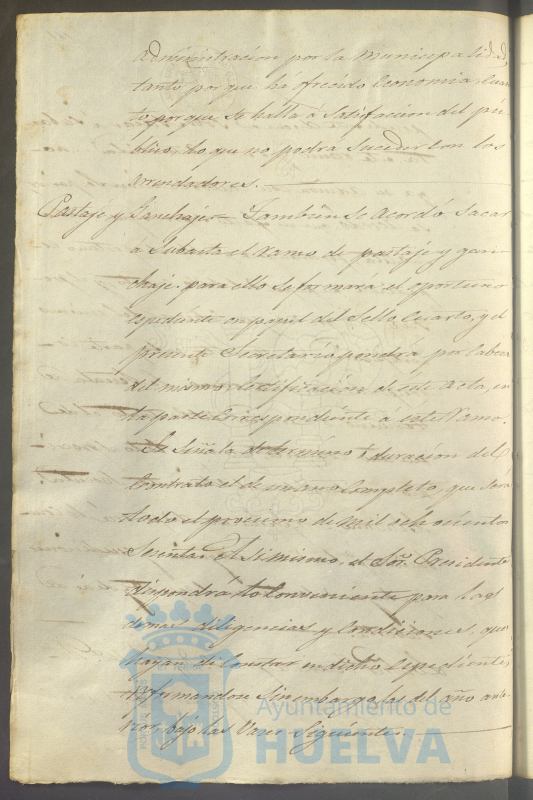 administracion por la Municipalidad,
tanto por que há ofrecido Economia, cuan-
to por que se halla á satisfacion del pú-
blico, lo que no podrá suceder con los
arrendadores.
Pastaje y Ganchaje = Tambien se acordó sacar
á Subasta el ramo de pastaje y gan-
chaje. para ello se formará el oportuno
espediente en papel del Sello Cuarto, y el
presente Secretario pondrá por cabeza
del mismo Certificacion de este Acta, en
la parte Correspondiente á este Ramo.
Se Señala de termino ó duracion del
Contrato el de un año Completo, que será
todo el procsimo de mil ocho cientos
Sesenta. El mismo, el Sor. Presidente
dispondrá lo Conveniente para las
demas diligencias y Condiciones, que
hayan de Constar en dicho Espediente,
formandose Sinembargo las del año ante-
rior bajo las Vases Siguientes.
Ayuntamiento de
HUELVA